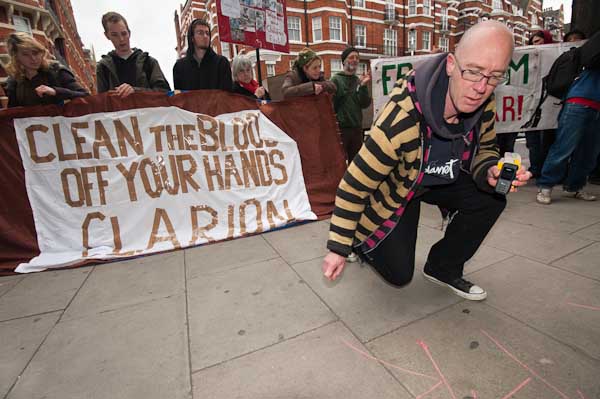 CLEAN THE BLOOD
OFF YOUR HANDS
CLARION
planet